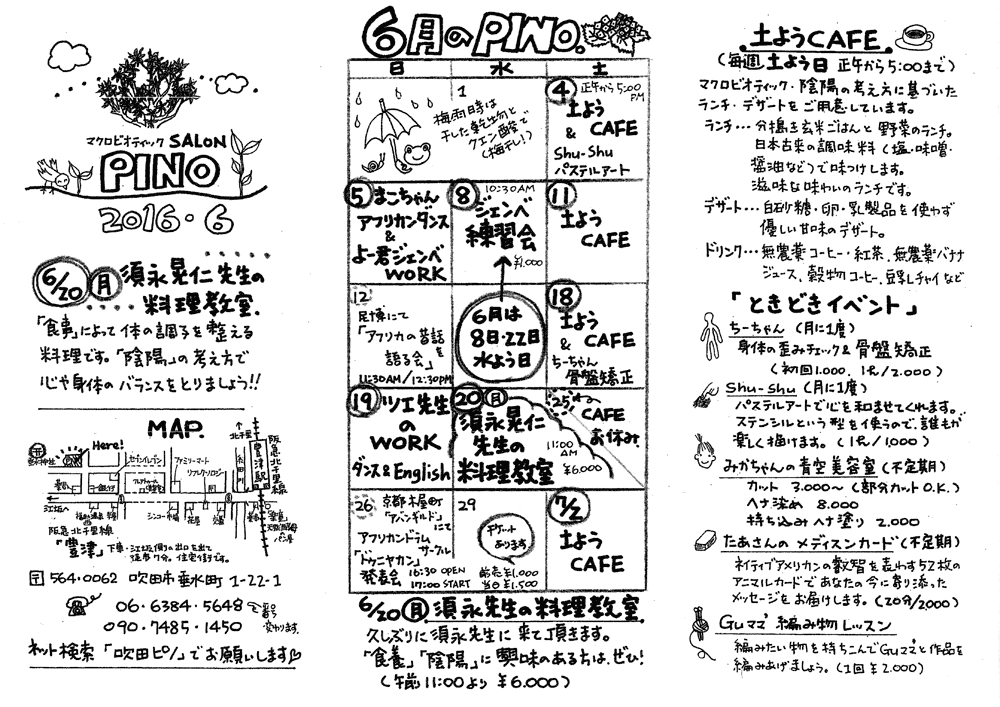 マクロビオティック SALON
PINO
2016・6
6/20 月 須永晃仁先生の
料理教室.
「食事」によって体の調子を整える
料理です。「陰陽」の考え方で
心や身体のバランスをとりましょう!!
MAP.
Here!
セブンイレブン
ファミリーマート
北千里
阪急北千里線
豊津駅
垂水神社
江坂
花屋
交番
阪急北千里線
「豊津」下車・江坂側の出口を出て
徒歩7分。住宅街です。
〒564-0062 吹田市垂水町 1-22-1
☎ 06・6384・5648
090・7485・1450
変わります。
ネット検索「吹田ピノ」でお願いします
6月のPINO.
日 水 土
梅雨時は
干した乾物と
クエン酸で
(梅干し!)
1
4 正午から5:00PM
土よう
& CAFE
Shu-Shu
パステルアート
5 まこちゃん
アフリカンダンス
&
よー君ジェンベ
WORK
8 10:30AM
ジェンベ
練習会
¥1.000
11
土よう
CAFE
12
民博にて
「アフリカの昔話
を
語る会」
11:30AM/12:30PM
6月は
8日・22日
水よう日
18
土よう
& CAFE
ちーちゃん
骨盤矯正
19 ツエ先生
の
WORK
ダンス&English
20 月
須永晃仁
先生の
料理教室
11:00
AM
¥6.000
25
CAFE
お休み
26 京都木屋町
「アバンギルド」
にて
アフリカンドラム
サークル
「ドゥニヤカン」
発表会
16:30 OPEN
17:00 START
29
チケット
あります
前売¥1.000
当日¥1.500
7/2
土よう
CAFE
6/20 月 須永先生の料理教室.
久しぶりに須永先生に来て頂きます。
「食養」「陰陽」に興味のある方は、ぜひ!
(午前11:00より ¥6.000)
土ようCAFE.
(毎週 土よう日 正午から5:00まで)
マクロビオティック・陰陽の考え方に基づいた
ランチ・デザートをご用意しています。
ランチ…分搗き玄米ごはんと野菜のランチ。
日本古来の調味料(塩・味噌・
醤油など)で味つけします。
滋味な味わいのランチです。
デザート…白砂糖・卵・乳製品を使わず
優しい甘味のデザート。
ドリンク…無農薬コーヒー・紅茶、無農薬バナナ
ジュース、穀物コーヒー、豆乳チャイなど
「ときどきイベント」
ちーちゃん (月に1度)
身体の歪みチェック & 骨盤矯正
(初回1.000、1代/2.000)
Shu-Shu (月に1度)
パステルアートで心を和ませてくれます。
ステンシルという型を使うので、誰もが
楽しく描けます。(1代/1,000)
みかちゃんの青空美容室(不定期)
カット 3.000〜(部分カットO.K.)
ヘナ染め 8.000
持ち込みヘナ塗り 2.000
たあさんの メディスンカード(不定期)
ネイティブアメリカンの叡智を表わす52枚の
アニマルカードであなたの今に寄り添った
メッセージをお届けします。(20分/2,000)
Guママ 編み物レッスン
編みたい物を持ちこんでGuママと作品を
編みあげましょう。(1回¥2.000)